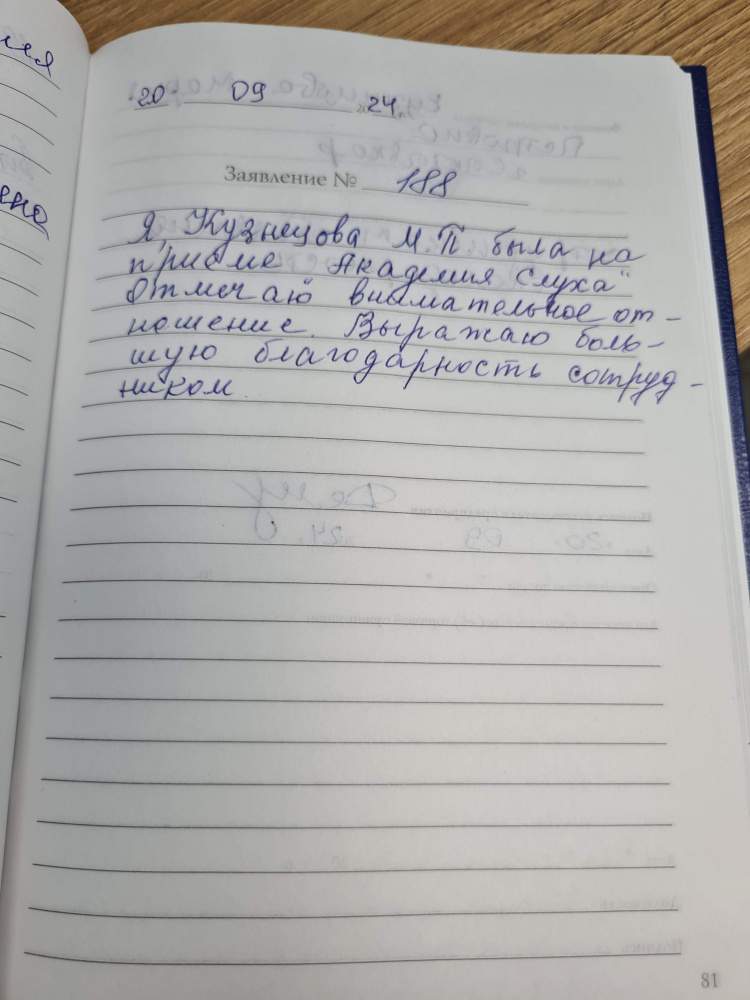 ия
ено
"20" 09 24 г.
Заявление № 188
Я, Кузнецова М.П была на
приеме "Академия Слуха"
Отмечаю внимательное от-
ношение. Выражаю боль-
шую благодарность сотруд-
ником.
81